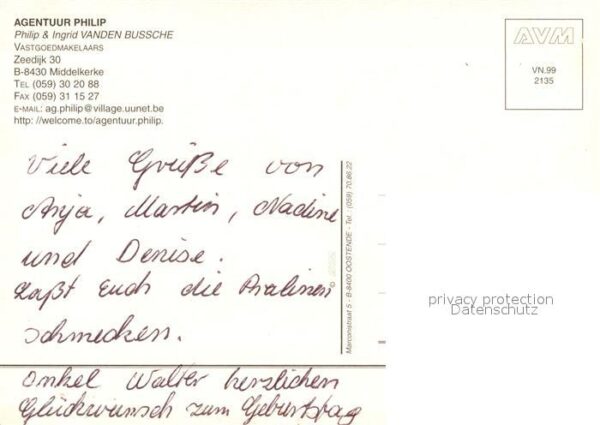 AGENTUUR PHILIP
Philip & Ingrid VANDEN BUSSCHE
VASTGOEDMAKELAARS
Zeedijk 30
B-8430 Middelkerke
TEL (059) 30 20 88
FAX (059) 31 15 27
E-MAIL: ag.philip@village.uunet.be
http: //welcome.to/agentuur.philip.
AVM
VN.99
2135
Viele Grüße von
Anja, Martin, Nadine
und Denise.
Laßt Euch die Pralinen
schmecken.
Onkel Walter herzlichen
Glückwunsch zum Geburtstag
Marconistraat 5 - B-8400 OOSTENDE - Tel.: (059) 70.86.22
©
privacy protection
Datenschutz